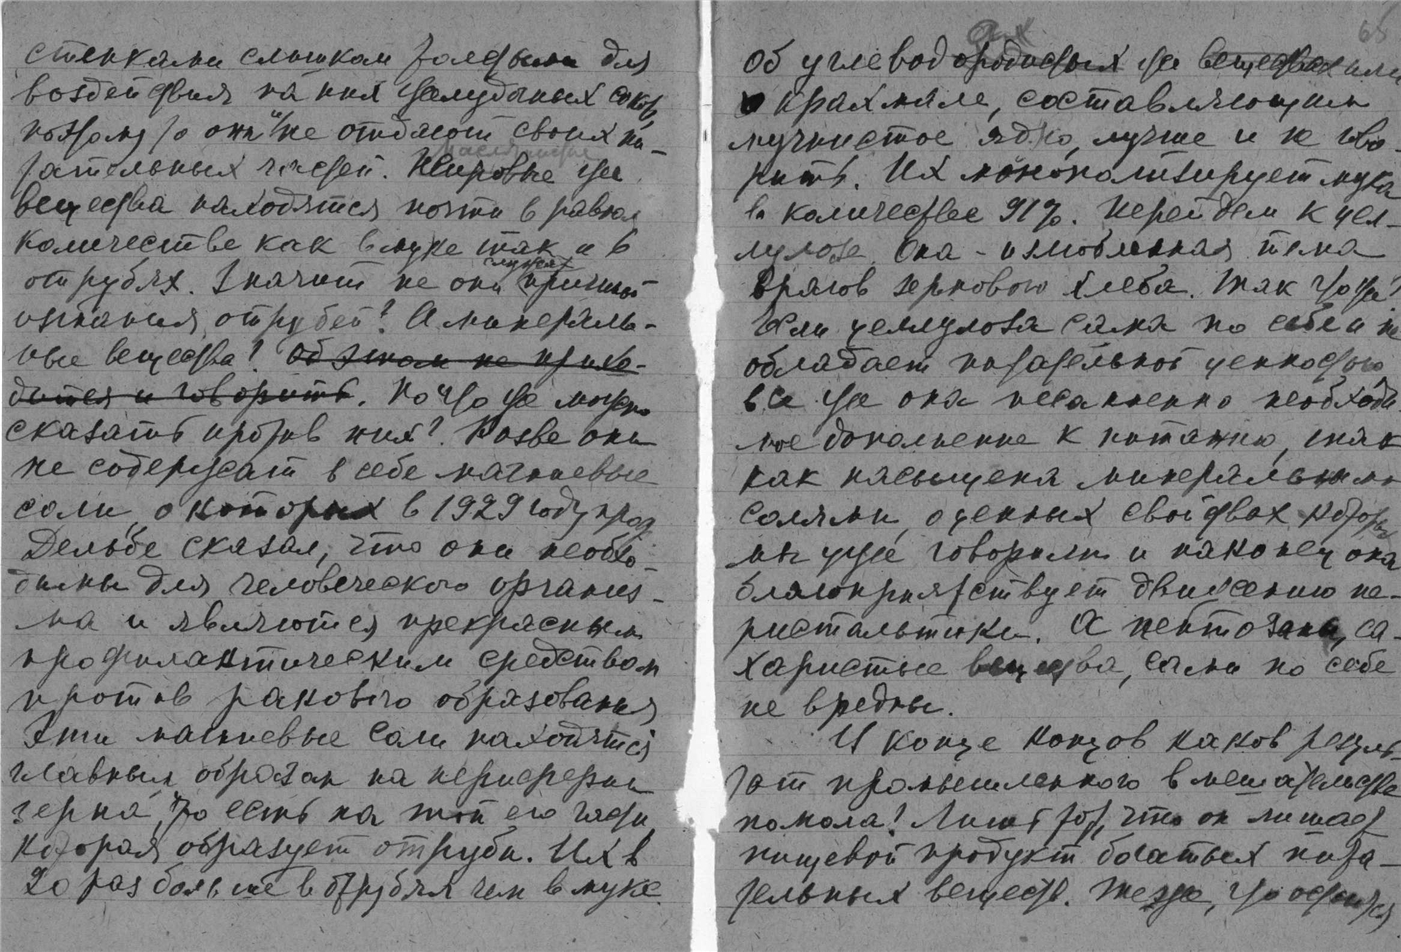 стенками слишком толстыми для
воздействия на них желудочных соков,
поэтому то они и не отдают своих пи-
тательных частей. Жировые же
маслянистые
вещества находятся почти в равном
количестве как в муке так и в
отрубях. Значит не они причиной
служат
изгнания отрубей? А минераль-
ные вещества? Об этом не прихо-
дится и говорить. Но что же можно
сказать против них? Разве они
не содержат в себе магниевые
соли, о которых в 1929 году проф.
Дельбе сказал, что они необхо-
димы для человеческого организ-
ма и являются прекрасным
профилактическим средством
против ракового образования
Эти магниевые соли находятся
главным образом на периферии
зерна, то есть на той его части
которая образует отруби. Их в
20 раз больше в отрубях чем в муке.
65
Об углеводородистых же веществах или
о крахмале, составляющим
мучнистое ядро, лучше и не гово-
рить. Их монополизирует мука
в количестве 91%. Перейдем к цел-
лулозе. Она - излюбленная тема
врагов зернового хлеба. Так что же?
Если целлулоза сама по себе и не
обладает питательной ценностью
все же она несомненно необходи-
мое дополнение к питанию, так
как насыщена минеральными
солями, о ценных свойствах которых
мы уже говорили и наконец она
благоприятствует движению пе-
ристальтики. А пентозаны, са-
харистые вещества, сами по себе
не вредны.
И конце концов каков резуль-
тат промышленного вмешательства
помола? Лишь тот, что он лишает
пищевой продукт богатых пита-
тельных веществ. Тезже, что остаются